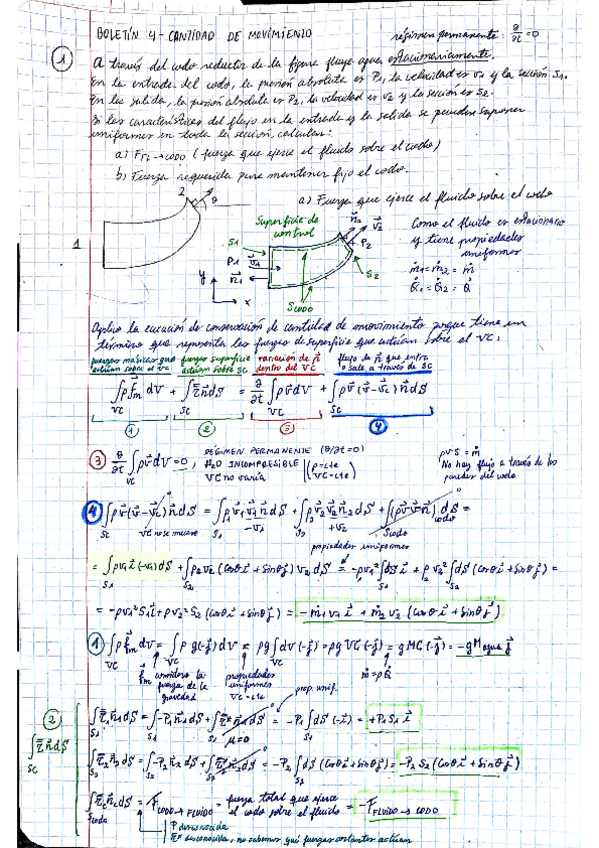 BOLETÍN 4 - CANTIDAD DE MOVIMIENTO
régimen permanente: ∂/∂t = 0
1
A través del codo reductor de la figura fluye agua estacionariamente.
En la entrada del codo, la presión absoluta es P1, la velocidad es v1 y la sección S1.
En la salida, la presión absoluta es P2, la velocidad es v2 y la sección es S2.
Si las características del flujo en la entrada y la salida se pueden suponer
uniformes en toda la sección, calcular:
a) F FL→CODO (fuerza que ejerce el fluido sobre el codo)
b) Fuerza requerida para mantener fijo el codo.
a) Fuerza que ejerce el fluido sobre el codo
2
θ
1
Superficie de
control
S1
P1 v1
n1
n2
v2
P2
S2
Scodo
y
x
Como el fluido es estacionario
y tiene propiedades
uniformes
ṁ1 = ṁ2 = ṁ
Q̇1 = Q̇2 = Q̇
Aplico la ecuación de conservación de cantidad de movimiento porque tiene un
término que representa las fuerzas de superficie que actúan sobre el VC:
fuerzas másicas que
actúan sobre el VC
fuerzas superficie
actúan sobre SC
variación de p⃗
dentro del VC
flujo de p⃗ que entra
o sale a través de SC
∫VC ρ f⃗m dV + ∫SC τ̿ n⃗ dS = ∂/∂t ∫VC ρ v⃗ dV + ∫SC ρ v⃗ (v⃗ - v⃗c) n⃗ dS
1 2 3 4
3 ∂/∂t ∫VC ρ v⃗ dV = 0,
RÉGIMEN PERMANENTE (∂/∂t=0)
H2O INCOMPRESIBLE (ρ=cte
VC no varía VC=cte)
ρ v·S = ṁ
No hay flujo a través de las
paredes del codo
4 ∫SC ρ v⃗ (v⃗ - v⃗c) n⃗ dS = ∫S1 ρ v⃗1 v⃗1 n⃗ dS + ∫S2 ρ v⃗2 v⃗2 n⃗2 dS + ∫Scodo (ρ v⃗ · v⃗ · n⃗) dS codo =
VC no se mueve
-v1
+v2
propiedades uniformes
= ∫S1 ρ v1 i⃗ (-v1) dS + ∫S2 ρ v2 (cosθ i⃗ + sinθ j⃗) v2 dS = -ρ v1² ∫S1 dS i⃗ + ρ v2² ∫S2 dS (cosθ i⃗ + sinθ j⃗) =
= -ρ v1² S1 i⃗ + ρ v2² S2 (cosθ i⃗ + sinθ j⃗) = -ṁ1 v1 i⃗ + ṁ2 v2 (cosθ i⃗ + sinθ j⃗)
1 ∫VC ρ f⃗m dV = ∫VC ρ g(-j⃗) dV = ρg ∫VC dV (-j⃗) = ρg VC (-j⃗) = g MC (-j⃗) = -g M agua j⃗
f⃗m considero la
fuerza de la
gravedad
propiedades
uniformes
VC = cte
ṁ = ρ Q̇
2 ∫SC τ̿ n⃗ dS
prop. unif.
∫S1 τ̿1 n⃗1 dS = ∫S1 -P1 n⃗1 dS + ∫S1 τ̿* n⃗1 dS = -P1 ∫S1 dS (-i⃗) = +P1 S1 i⃗
μ = 0
∫S2 τ̿2 n⃗2 dS = ∫S2 -P2 n⃗2 dS + ∫S2 τ̿* n⃗2 dS = -P2 ∫S2 dS (cosθ i⃗ + sinθ j⃗) = -P2 S2 (cosθ i⃗ + sinθ j⃗)
∫Scodo τ̿c n⃗c dS = F CODO→FLUIDO = fuerza total que ejerce
el codo sobre el fluido = -F FLUIDO→CODO
P desconocida
τ̿* desconocida, no sabemos qué fuerzas cortantes actúan